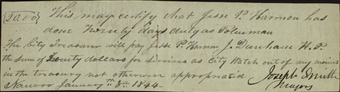 This may certify that Jesse P. Harmon has
done Twenty days duty as Policeman
The City Treasurer will pay Jesse P. Harmon
the sum of Twenty dollars for Services as City Watch out of any monies
in the treasury not otherwise appropriated
Joseph Smith
Nauvoo January 3rd 1844.
Mayor